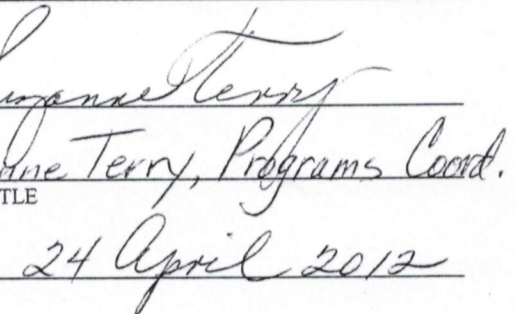 uzanne Terry
nne Terry, Programs Coord.
TLE
24 April 2012